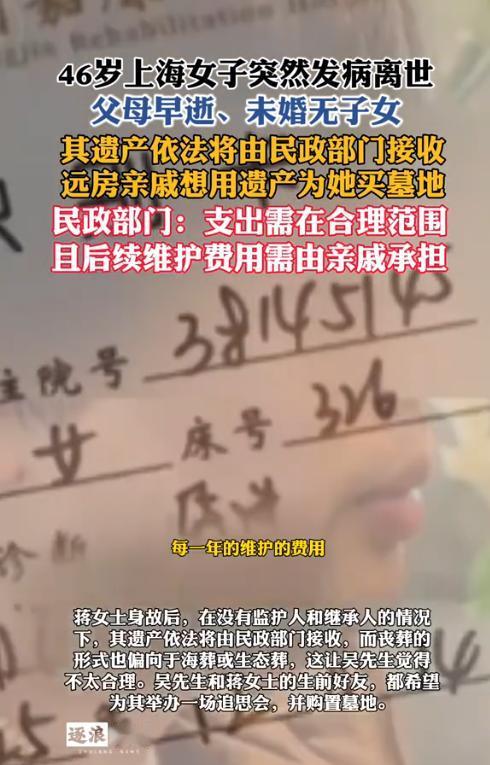 Rehabilitation
46岁上海女子突然发病离世
父母早逝、未婚无子女
其遗产依法将由民政部门接收
远房亲戚想用遗产为她买墓地
民政部门：支出需在合理范围
且后续维护费用需由亲戚承担
住院号 38145145
女 床号 326
诊断
每一年的维护的费用
蒋女士身故后，在没有监护人和继承人的情况
下，其遗产依法将由民政部门接收，而丧葬的
形式也偏向于海葬或生态葬，这让吴先生觉得
不太合理。吴先生和蒋女士的生前好友，都希望
为其举办一场追思会，并购置墓地。
逐浪